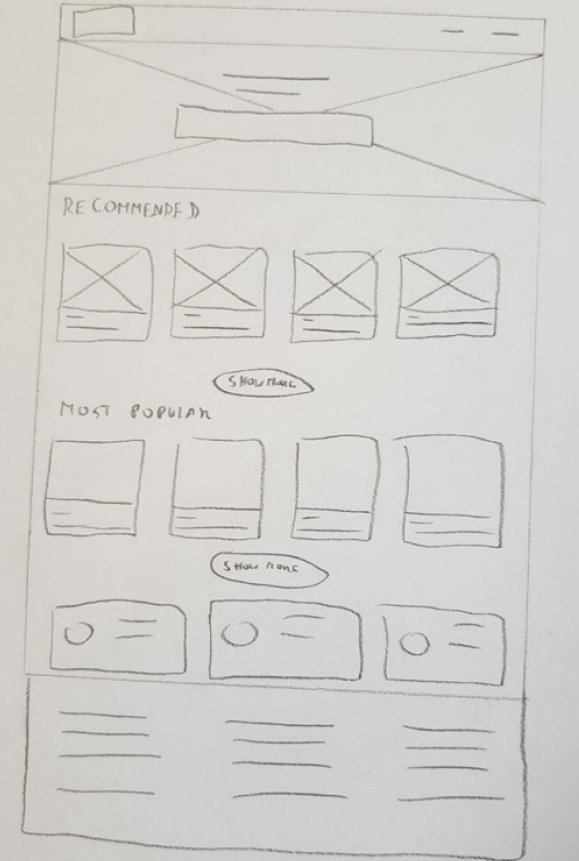 RECOMMENDED
SHOW MORE
MOST POPULAR
SHOW MORE